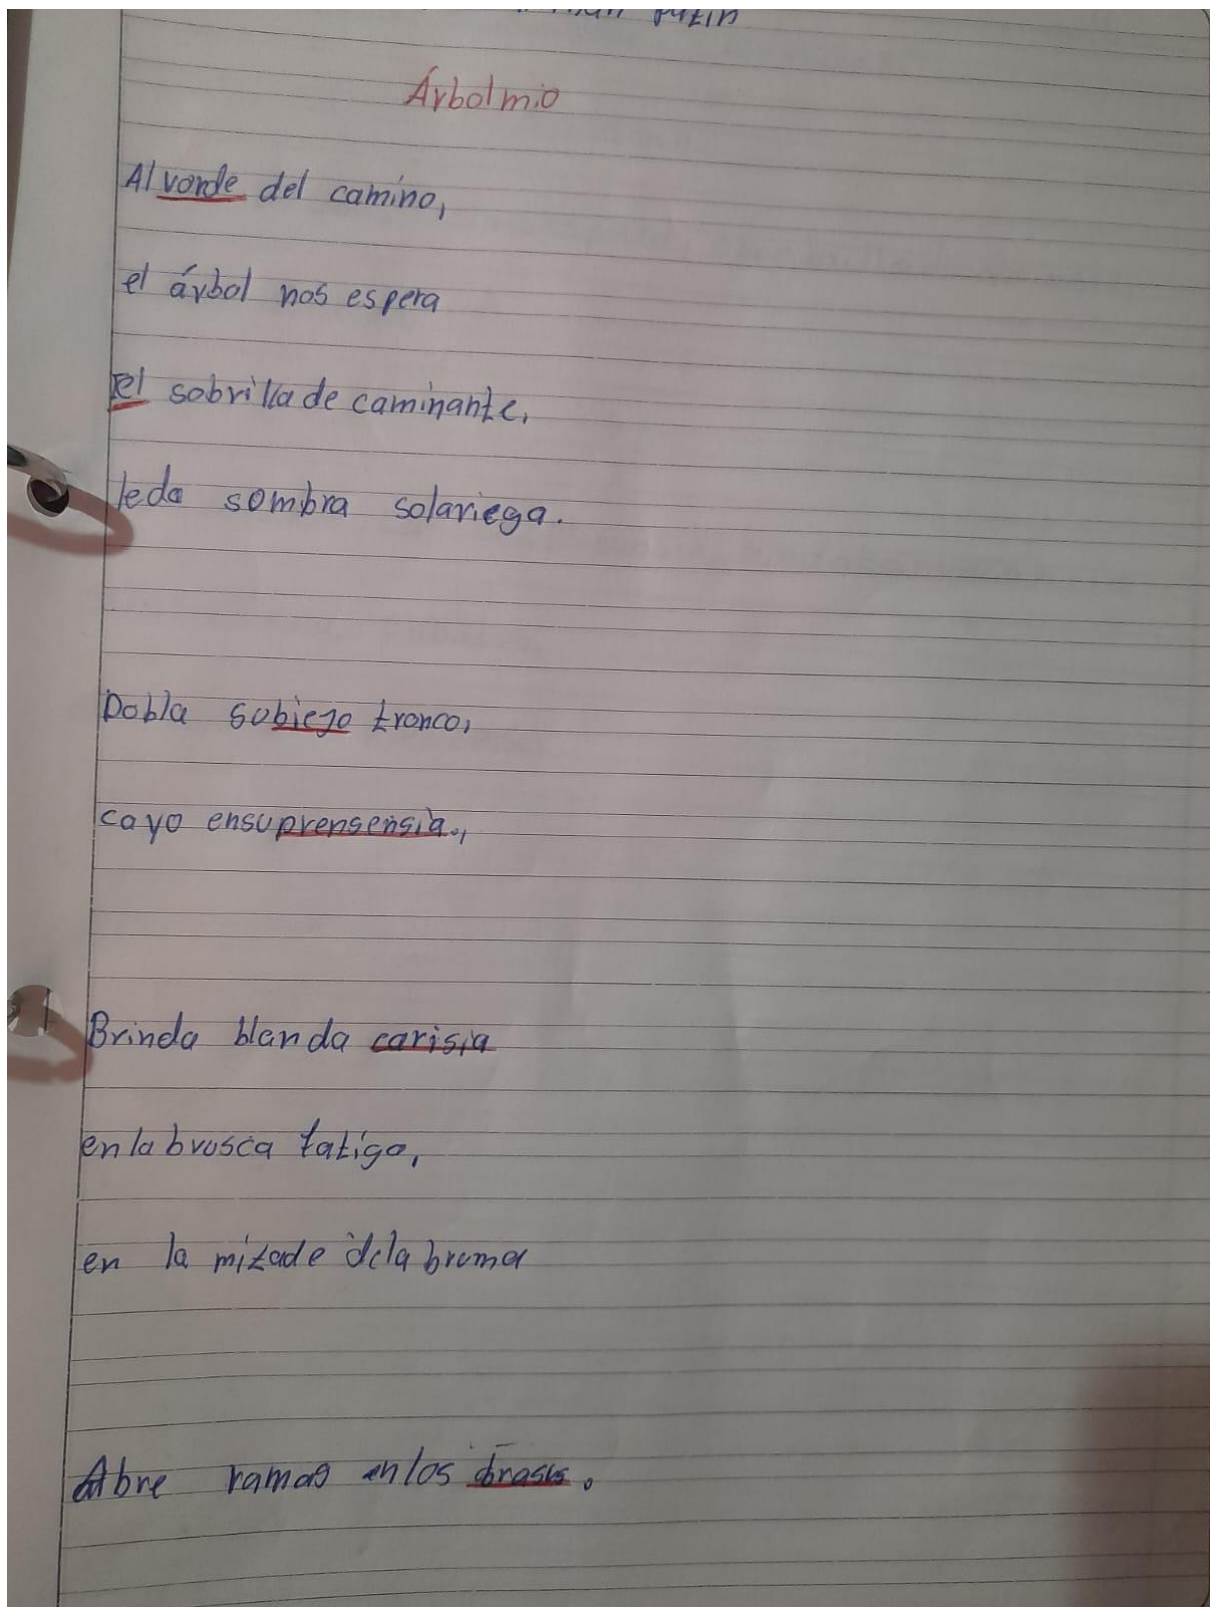 Árbol mio
Al vorde del camino,
el árbol nos espera
el sobrilla de caminante,
le da sombra solariega.
Dobla su biejo tronco,
cayo ensuprensensia.,
Brinda blanda carisia
en la brusca fatiga,
en la mitade dela bruma
Abre ramas en los